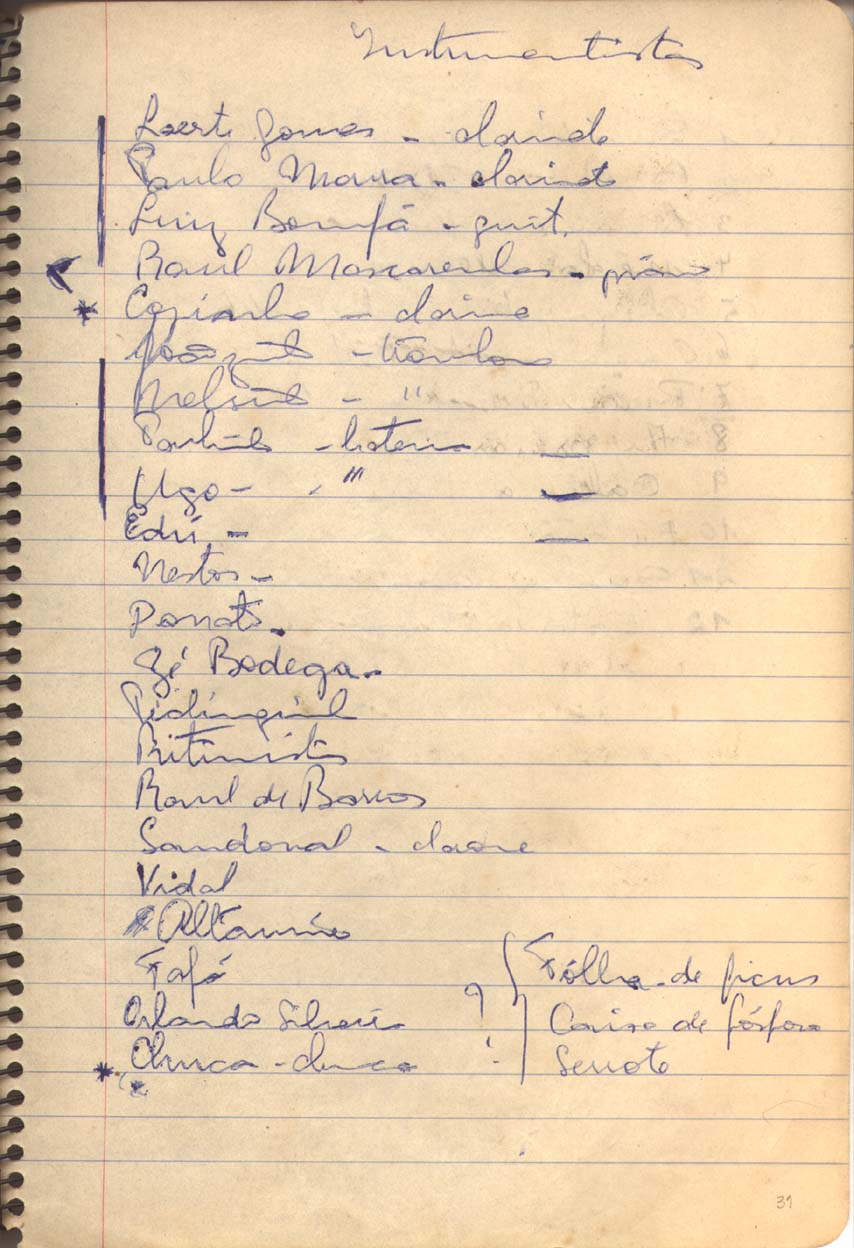 Instrumentistas
Laerte Gomes - clarinete
Paulo Moura - clarinete
Luiz Bonfá - guit.
Raul Mascarenhas - piano
Copinha - clarine
- trombone
Nelsinho - "
Paulinho - bateria
Ugo - - "
Edú -
Nestor -
Donato -
Zé Bodega -
Pedinguinho
Ritimistas
Raul de Barros
Sandoval - clarone
Vidal
Altamiro
Fafá
Fôlha - de ficus
Orlando Silveira
?
Caixa de fósforo
Chuca - chuca
Serrote
31